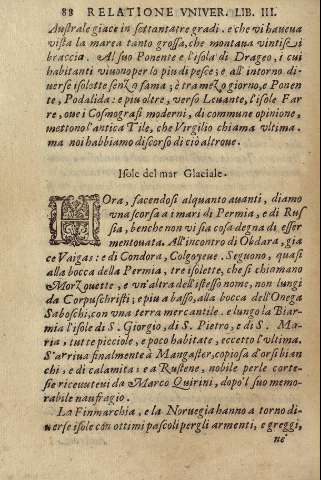 88 RELATIONE VNIVER. LIB. III.
Australe giace in settantatre gradi. e che vi haueua
vista la marea tanto grossa, che montaua vintisei
braccia. Al suo Ponente è l'isola di Drageo, i cui
habitanti viuono per lo piu di pesce; e all'intorno di-
uerse isolotte senza fama; è tra mezo giorno, e Ponen
te, Podalida: e piu oltre, verso Leuante, l'isole Far
re, oue i Cosmografi moderni, di commune opinione,
mettono l'antica Tile, che Virgilio chiama vltima.
ma noi habbiamo discorso di ciò altroue.
Isole del mar Glaciale.
HOra, facendosi alquanto auanti, diamo
vna scorsa a i mari di Permia, e di Rus
sia, benche non vi sia cosa degna di esser
mentouata. All'incontro di Obdara, gia
ce Vaigas: e di Condora, Colgoyeue. Seguono, quasi
alla bocca della Permia, tre isolette, che si chiamano
Morzouette, e vn'altra dell'istesso nome, non lungi
da Corpuschristi; e piu a basso, alla bocca dell'Onega
Saboschi, con vna terra mercantile. e lungo la Biar-
mia l'isole di S. Giorgio, di S. Pietro, e di S. Ma-
ria, tutte picciole, e poco habitate, eccetto l'vltima.
S'arriua finalmente à Mangaster, copiosa d'orsi bian
chi, e di calamita: e a Rustene, nobile perle corte-
sie riceuuteui da Marco Quirini, dopo'l suo memo-
rabile naufragio.
La Finmarchia, e la Noruegia hanno a torno di-
uerse isole con ottimi pascoli per gli armenti, e greggi,
ne'